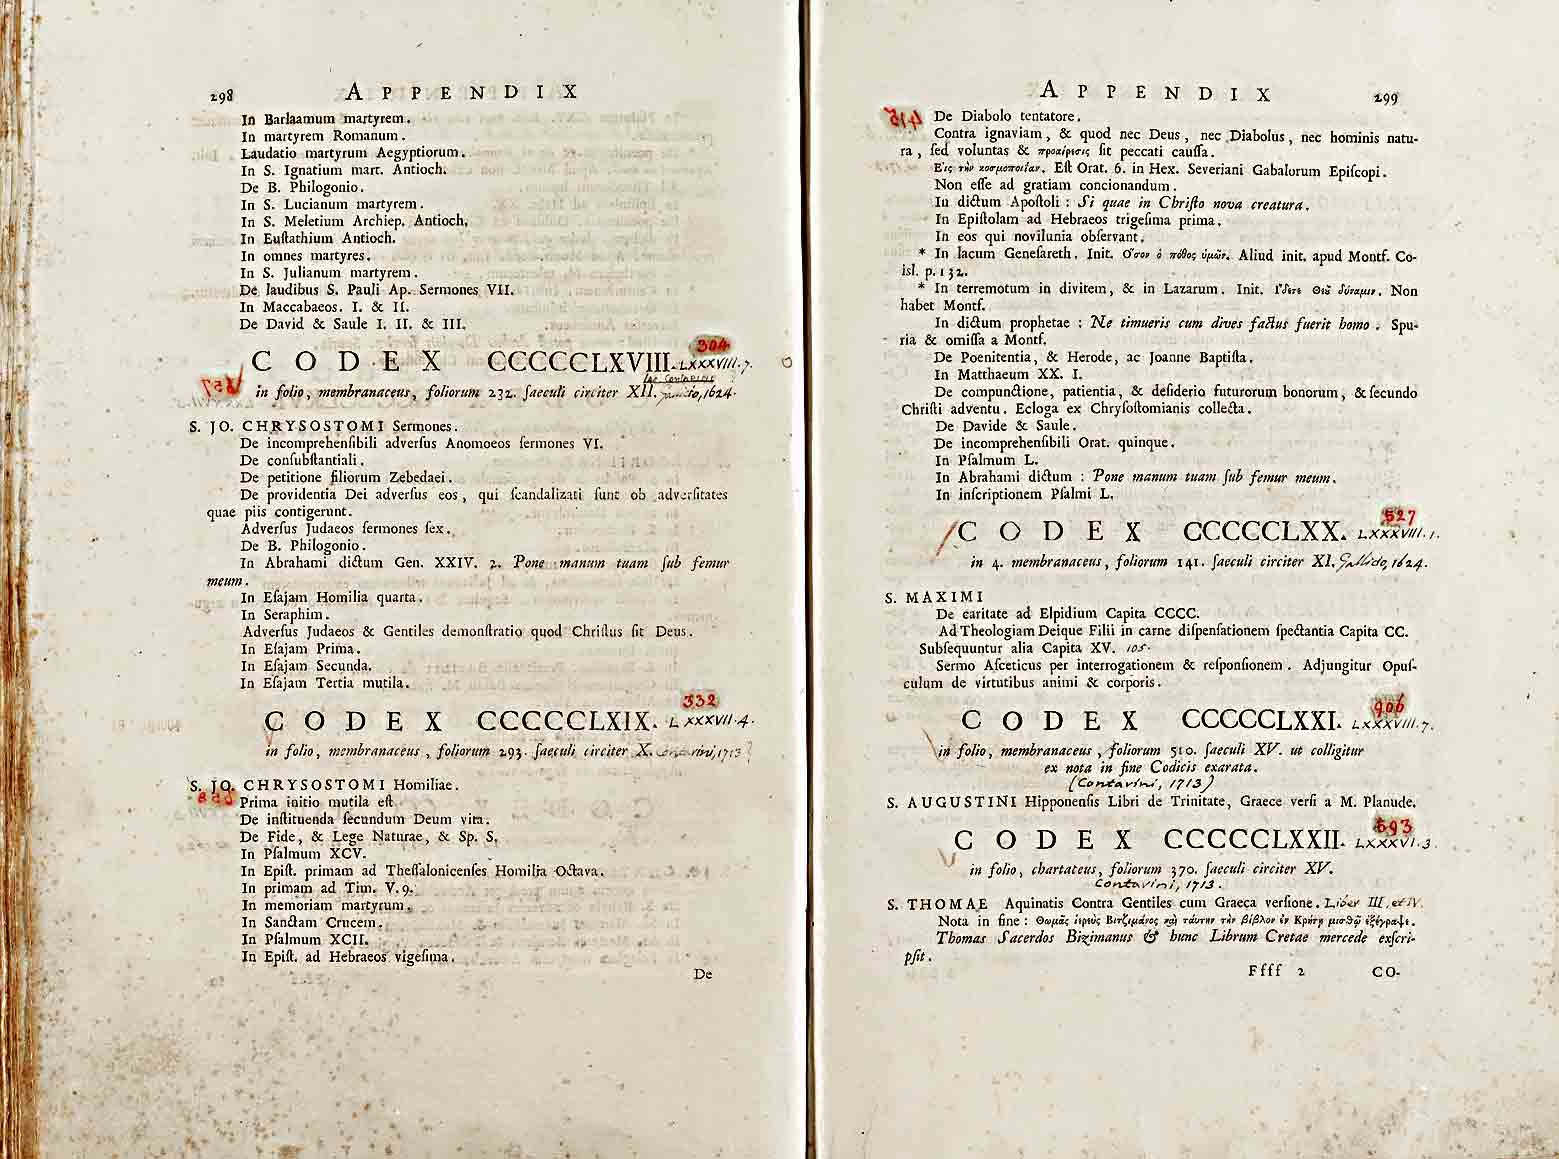 298 APPENDIX
In Barlaamum martyrem.
In martyrem Romanum.
Laudatio martyrum Aegyptiorum.
In S. Ignatium mart. Antioch.
De B. Philogonio.
In S. Lucianum martyrem.
In S. Meletium Archiep. Antioch.
In Euſtathium Antioch.
In omnes martyres.
In S. Julianum martyrem.
De laudibus S. Pauli Ap. Sermones VII.
In Maccabaeos. I. & II.
De David & Saule I. II. & III.
304
CODEX CCCCCLXVIII. LXXXVIII.7.
in folio, membranaceus, foliorum 232. ſaeculi circiter XII. 1624.
S. JO. CHRYSOSTOMI Sermones.
De incomprehenſibili adverſus Anomoeos ſermones VI.
De conſubſtantiali.
De petitione filiorum Zebedaei.
De providentia Dei adverſus eos, qui ſcandalizati ſunt ob adverſitates
quae piis contigerunt.
Adverſus Judaeos ſermones ſex.
De B. Philogonio.
In Abrahami dictum Gen. XXIV. 2. Pone manum tuam ſub femur
meum.
In Eſajam Homilia quarta.
In Seraphim.
Adverſus Judaeos & Gentiles demonſtratio quod Chriſtus ſit Deus.
In Eſajam Prima.
In Eſajam Secunda.
In Eſajam Tertia mutila.
332
CODEX CCCCCLXIX. LXXXVII.4.
in folio, membranaceus, foliorum 293. ſaeculi circiter X. Contarini, 1713
S. JO. CHRYSOSTOMI Homiliae.
Prima initio mutila eſt
De inſtituenda ſecundum Deum vita.
De Fide, & Lege Naturae, & Sp. S.
In Pſalmum XCV.
In Epiſt. primam ad Theſſalonicenſes Homilia Octava.
In primam ad Tim. V. 9.
In memoriam martyrum.
In Sanctam Crucem.
In Pſalmum XCII.
In Epiſt. ad Hebraeos vigeſima.
De
APPENDIX 299
De Diabolo tentatore.
Contra ignaviam, & quod nec Deus, nec Diabolus, nec hominis natu-
ra, ſed voluntas & προαίρεσις ſit peccati cauſſa.
Εἰς τὴν κοσμοποιΐαν. Eſt Orat. 6. in Hex. Severiani Gabalorum Epiſcopi.
Non eſſe ad gratiam concionandum.
In dictum Apoſtoli: Si quae in Chriſto nova creatura.
In Epiſtolam ad Hebraeos trigeſima prima.
In eos qui novilunia obſervant.
* In lacum Geneſareth. Init. Ὅσον ὁ πόθος ὑμῶν. Aliud init. apud Montf. Co-
isl. p. 132.
* In terremotum in divitem, & in Lazarum. Init. Ἴδετε Θεοῦ δύναμιν. Non
habet Montf.
In dictum prophetae: Ne timueris cum dives factus fuerit homo. Spu-
ria & omiſſa a Montf.
De Poenitentia, & Herode, ac Joanne Baptiſta.
In Matthaeum XX. I.
De compunctione, patientia, & deſiderio futurorum bonorum, & ſecundo
Chriſti adventu. Ecloga ex Chryſoſtomianis collecta.
De Davide & Saule.
De incomprehenſibili Orat. quinque.
In Pſalmum L.
In Abrahami dictum: Pone manum tuam ſub femur meum.
In inſcriptionem Pſalmi L.
527
CODEX CCCCCLXX. LXXXVIII.1.
in 4. membranaceus, foliorum 141. ſaeculi circiter XI. Gallicio, 1624.
S. MAXIMI
De caritate ad Elpidium Capita CCCC.
Ad Theologiam Deique Filii in carne diſpenſationem ſpectantia Capita CC.
Subſequuntur alia Capita XV. 105.
Sermo Aſceticus per interrogationem & reſponſionem. Adjungitur Opuſ-
culum de virtutibus animi & corporis.
906
CODEX CCCCCLXXI. LXXXVIII.7.
in folio, membranaceus, foliorum 510. ſaeculi XV. ut colligitur
ex nota in fine Codicis exarata.
(Contarini, 1713)
S. AUGUSTINI Hipponenſis Libri de Trinitate, Graece verſi a M. Planude.
693
CODEX CCCCCLXXII. LXXXVI.3.
in folio, chartaceus, foliorum 370. ſaeculi circiter XV.
Contarini, 1713.
S. THOMAE Aquinatis Contra Gentiles cum Graeca verſione. Liber III. et IV.
Nota in fine: Θωμᾶς ἱερεὺς Βιτζιμάνος καὶ ταύτην τὴν βίβλον ἐν Κρήτῃ μισθῷ ἐξέγραψε.
Thomas Sacerdos Bizimanus & hunc Librum Cretae mercede exſcri-
pſit.
Ffff 2 CO-